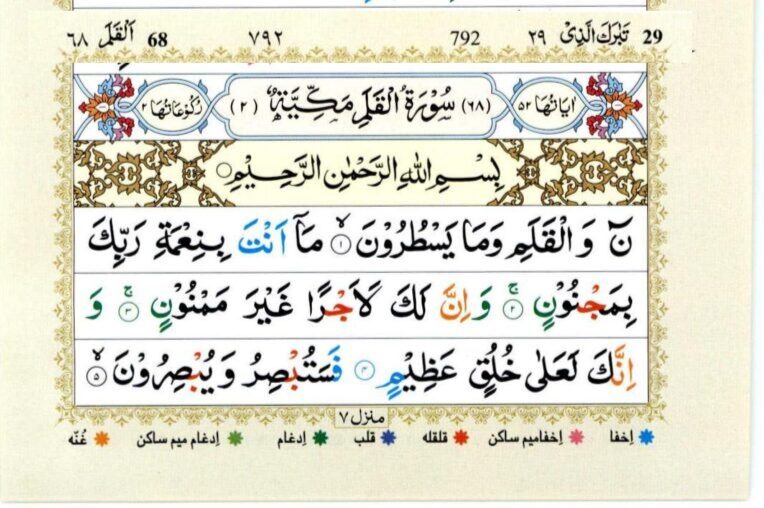 29 تَبٰرَكَ الَّذِیْ ۲۹ 792 ۷۹۲ 68 اَلْقَلَم ۶۸
اٰیَاتُهَا ۵۲ (۶۸) سُوْرَةُ الْقَلَمِ مَكِّیَّةٌ (۲) رُكُوْعَاتُهَا ۲
بِسْمِ اللّٰهِ الرَّحْمٰنِ الرَّحِیْمِ
نٓ وَ الْقَلَمِ وَ مَا یَسْطُرُوْنَۙ ۱ مَاۤ اَنْتَ بِنِعْمَةِ رَبِّكَ
بِمَجْنُوْنٍۚ ۲ وَ اِنَّ لَكَ لَاَجْرًا غَیْرَ مَمْنُوْنٍۚ ۳ وَ
اِنَّكَ لَعَلٰى خُلُقٍ عَظِیْمٍ ۴ فَسَتُبْصِرُ وَ یُبْصِرُوْنَۙ ۵
منزل ۷
اِخفا اِخفا میم ساکن قلقله قلب اِدغام اِدغام میم ساکن غُنّه